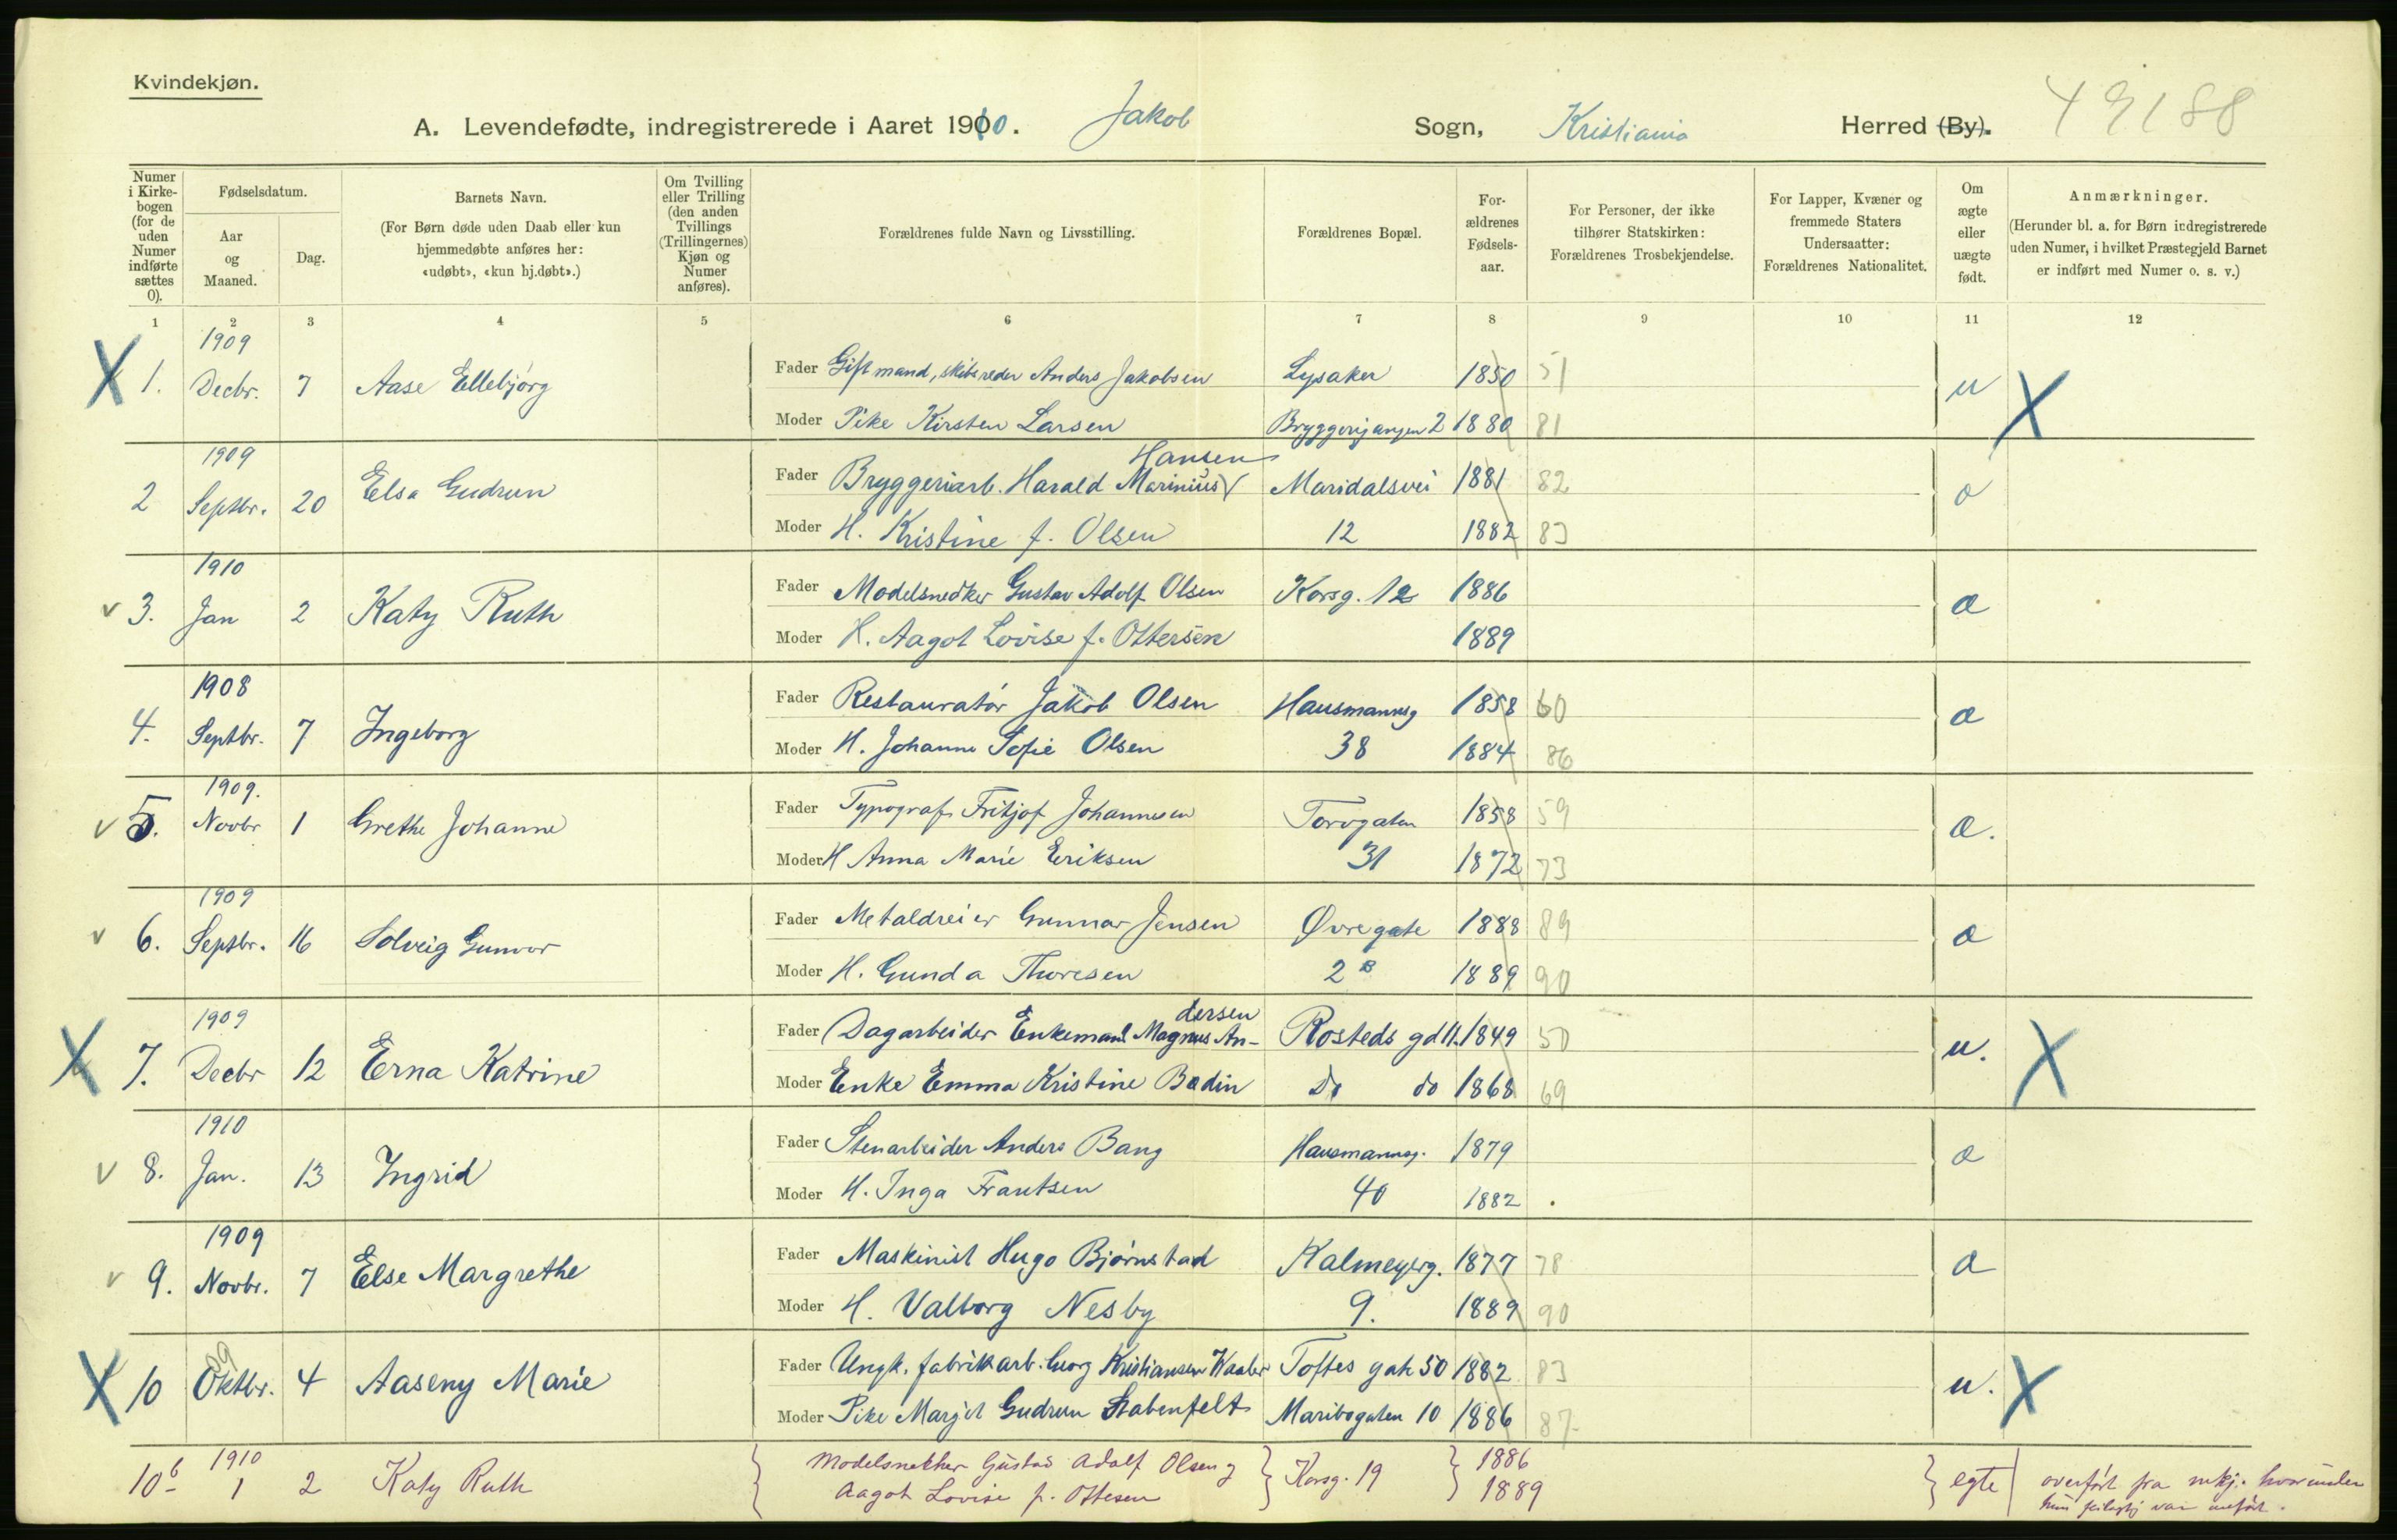 Kvindekjøn.
A. Levendefødte, indregistrerede i Aaret 1910. Jakob Sogn, Kristiania Herred (By). 49188
Numer i Kirkebogen (for de uden Numer indførte sættes 0).
Fødselsdatum.
Aar og Maaned.
Dag.
Barnets Navn.
(For Børn døde uden Daab eller kun hjemmedøbte anføres her: «udøbt», «kun hj.døbt».)
Om Tvilling eller Trilling (den anden Tvillings (Trillingernes) Kjøn og Numer anføres).
Forældrenes fulde Navn og Livsstilling.
Forældrenes Bopæl.
Forældrenes Fødselsaar.
For Personer, der ikke tilhører Statskirken: Forældrenes Trosbekjendelse.
For Lapper, Kvæner og fremmede Staters Undersaatter: Forældrenes Nationalitet.
Om ægte eller uægte født.
Anmærkninger.
(Herunder bl. a. for Børn indregistrerede uden Numer, i hvilket Præstegjeld Barnet er indført med Numer o. s. v.)
1 2 3 4 5 6 7 8 9 10 11 12
1909
X 1. Decbr. 7 Aase Ellebjørg Fader Gift mand, skibsreder Anders Jakobsen Lysaker 1850 51 u X
Moder Pike Kirsten Larsen Bryggerigangen 2 1880 81
1909 Hansen
2 Septbr. 20 Elsa Gudrun Fader Bryggeriarb. Harald Marinius Maridalsvei 1881 82 æ
Moder H. Kristine f. Olsen 12 1882 83
1910
v 3. Jan 2 Katy Ruth Fader Modelsnedker Gustav Adolf Olsen Korsg. 12 1886 æ
Moder H. Aagot Lovise f. Ottersen 1889
1908
4. Septbr. 7 Ingeborg Fader Restauratør Jakob Olsen Hausmannsg 1858 60 æ
Moder H. Johanne Sofie Olsen 38 1884 86
1909.
v 5. Novbr 1 Grethe Johanne Fader Typograf Fritjof Johannesen Torvgaten 1858 59 æ.
Moder H Anna Marie Eriksen 31 1872 73
1909
v 6. Septbr. 16 Solveig Gunvor Fader Metaldreier Gunnar Jensen Øvregate 1888 89 æ
Moder H. Gunda Thoresen 2 B 1889 90
1909 dersen
X 7. Decbr 12 Erna Katrine Fader Dagarbeider Enkemand Magnus An- Rosteds gd 11. 1849 50 u. X
Moder Enke Emma Kristine Bodin do do 1868 69
1910
v 8. Jan. 13 Ingrid Fader Stenarbeider Anders Bang Hausmannsg. 1879 æ
Moder H. Inga Frantsen 40 1882
1909
v 9. Novbr. 7 Else Margrethe Fader Maskinist Hugo Bjørnstad Kalmeyerg. 1877 78 æ
Moder H. Valborg Nesby 9. 1889 90
09
X 10 Oktbr. 4 Aaseny Marie Fader Ungk. fabrikkarb. Georg Kristiansen Kaabr Toftes gate 50 1882 83 u. X
Moder Pike Marjit Gudrun Stabenfelt Maribogaten 10 1886 87
1910
10 b 1 2 Katy Ruth Modelsnekker Gustav Adolf Olsen og Korsg. 19 1886 egte overført fra mkj. hvorunder
Aagot Lovise f. Ottesen 1889 hun feilagtig var anført.